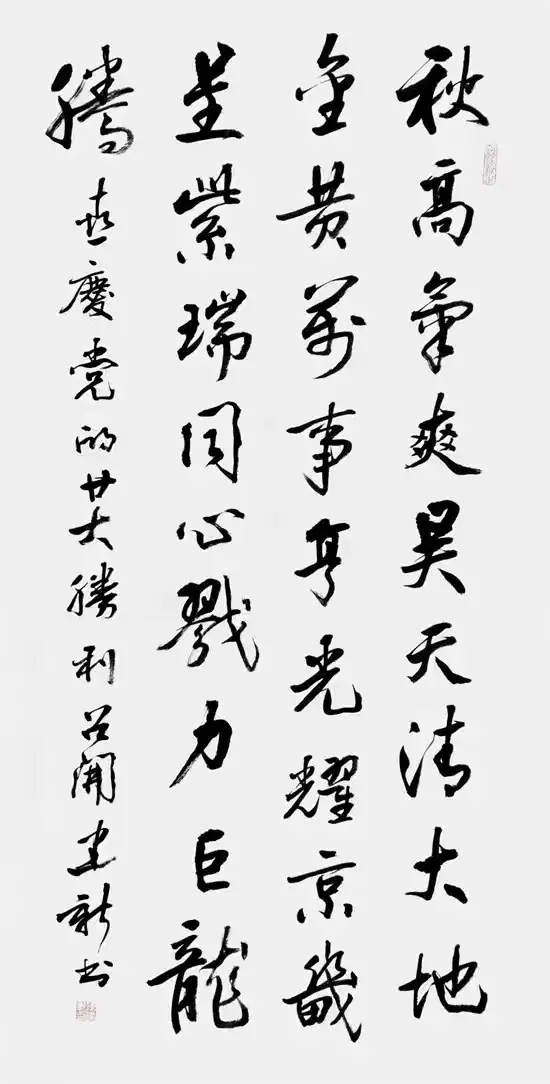 秋高氣爽昊天清大地
金黄萬事亨光耀京畿
呈紫瑞同心戮力巨龍
騰
喜慶党的廿大勝利召開建新书